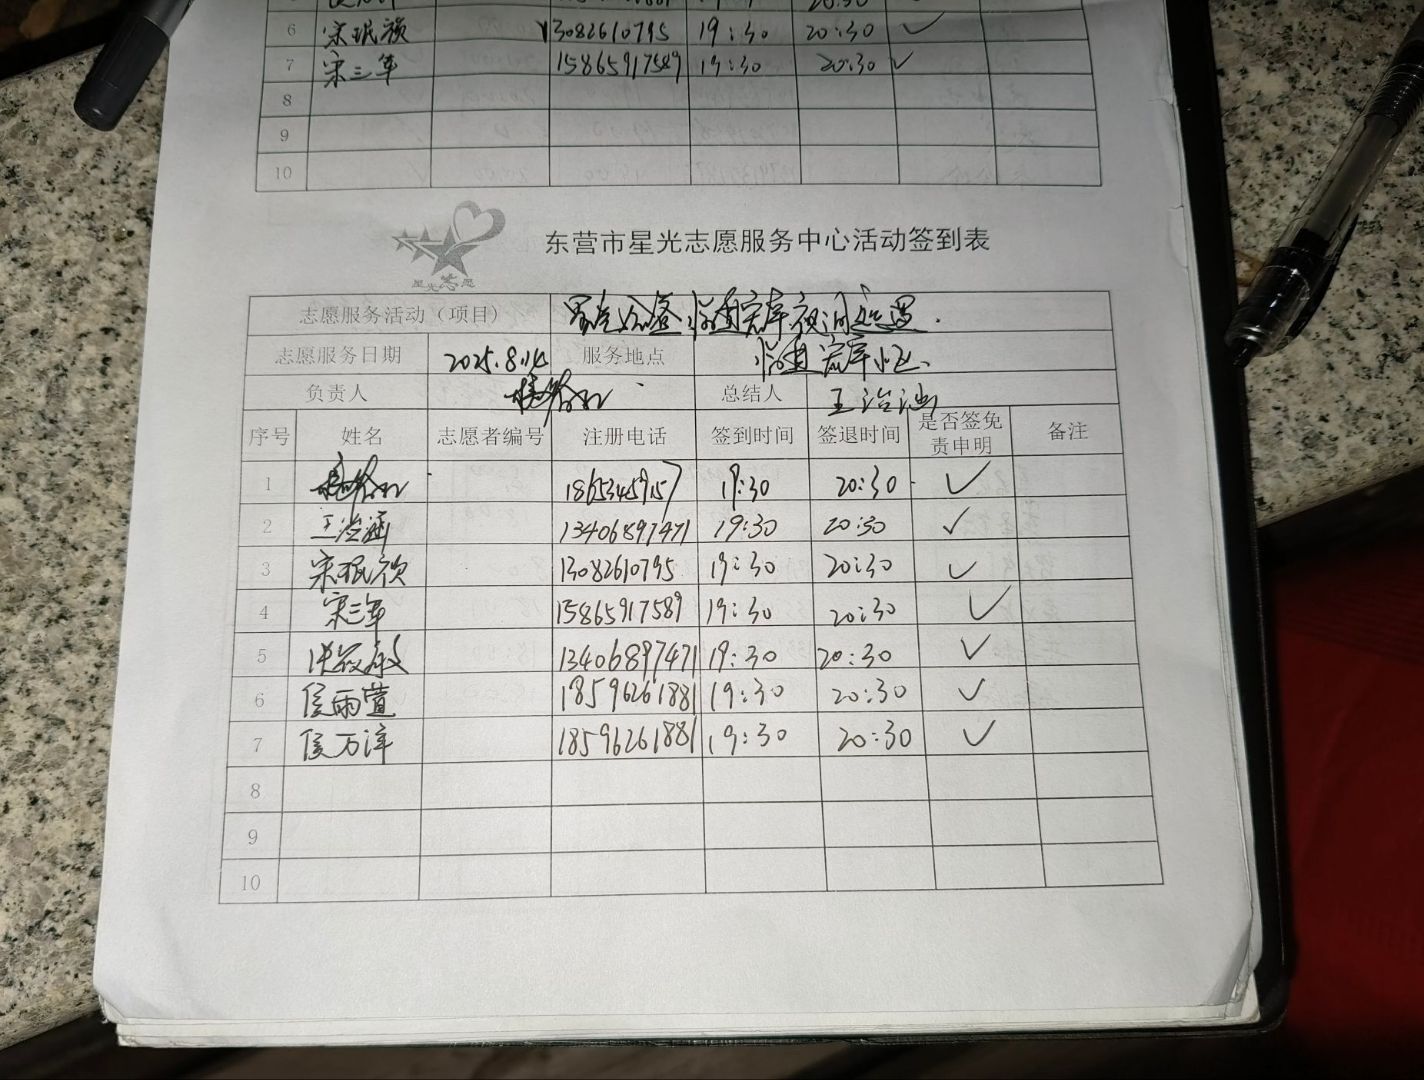 6 宋珉颍 13082610795 19:30 20:30 ✓
7 宋三军 15865917589 19:30 20:30 ✓
8
9
10
星光志愿
东营市星光志愿服务中心活动签到表
志愿服务活动（项目） 夜间巡逻.
志愿服务日期 2025.8.14 服务地点
负责人 总结人 王治涵
序号 姓名 志愿者编号 注册电话 签到时间 签退时间 是否签免责申明 备注
1 18653445957 19:30 20:30 ✓
2 王治涵 13406897471 19:30 20:30 ✓
3 宋珉颍 13082610795 19:30 20:30 ✓
4 宋三军 15865917589 19:30 20:30 ✓
5 13406897471 19:30 20:30 ✓
6 侯雨萱 18596261881 19:30 20:30 ✓
7 侯万泽 18596261881 19:30 20:30 ✓
8
9
10